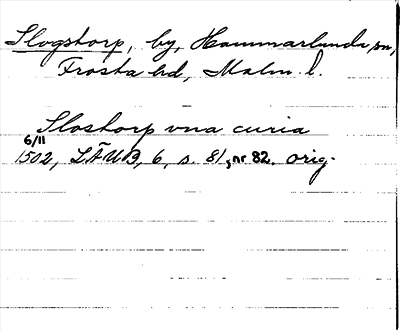 Slogstorp, by, Hammarlunda sn,
Frosta hd, Malm. l.
Slostorp vna curia
6/11
1502, LÄUB, 6, s. 81, nr 82. orig.